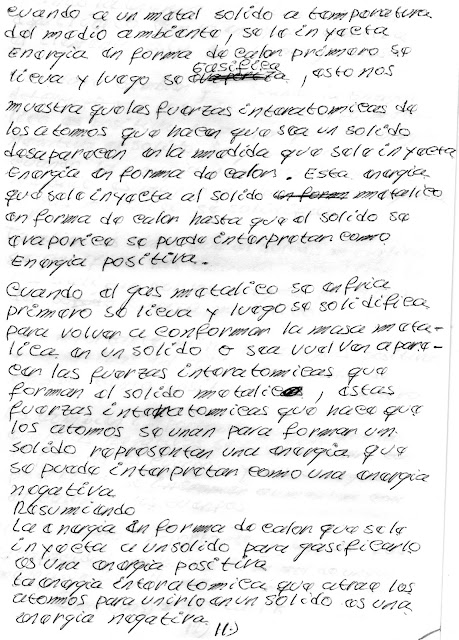 cuando a un metal solido a temperatura
del medio ambiente, se le inyecta
Energia en forma de calor primero se
lieva y luego se gasifica, esto nos
muestra que las fuerzas interatomicas de
los atomos que hacen que sea un solido
desaparecen en la medida que se le inyecta
Energia en forma de calor. Esta energia
que se le inyecta al solido metalico
en forma de calor hasta que el solido se
evaporice se puede interpretar como
Energia positiva.
Cuando el gas metalico se enfria
primero se lieva y luego se solidifica
para volver a conformar la masa meta-
lica en un solido o sea vuelven apare-
cer las fuerzas interatomicas que
forman el solido metalico, estas
fuerzas interatomicas que hace que
los atomos se unan para formar un
solido representan una energia que
se puede interpretar como una energia
negativa
Resumiendo
La energia en forma de calor que se le
inyecta a un solido para gasificarlo
es una energia positiva
La energia interatomica que atrae los
atommos para unirlo en un solido es una
energia negativa.